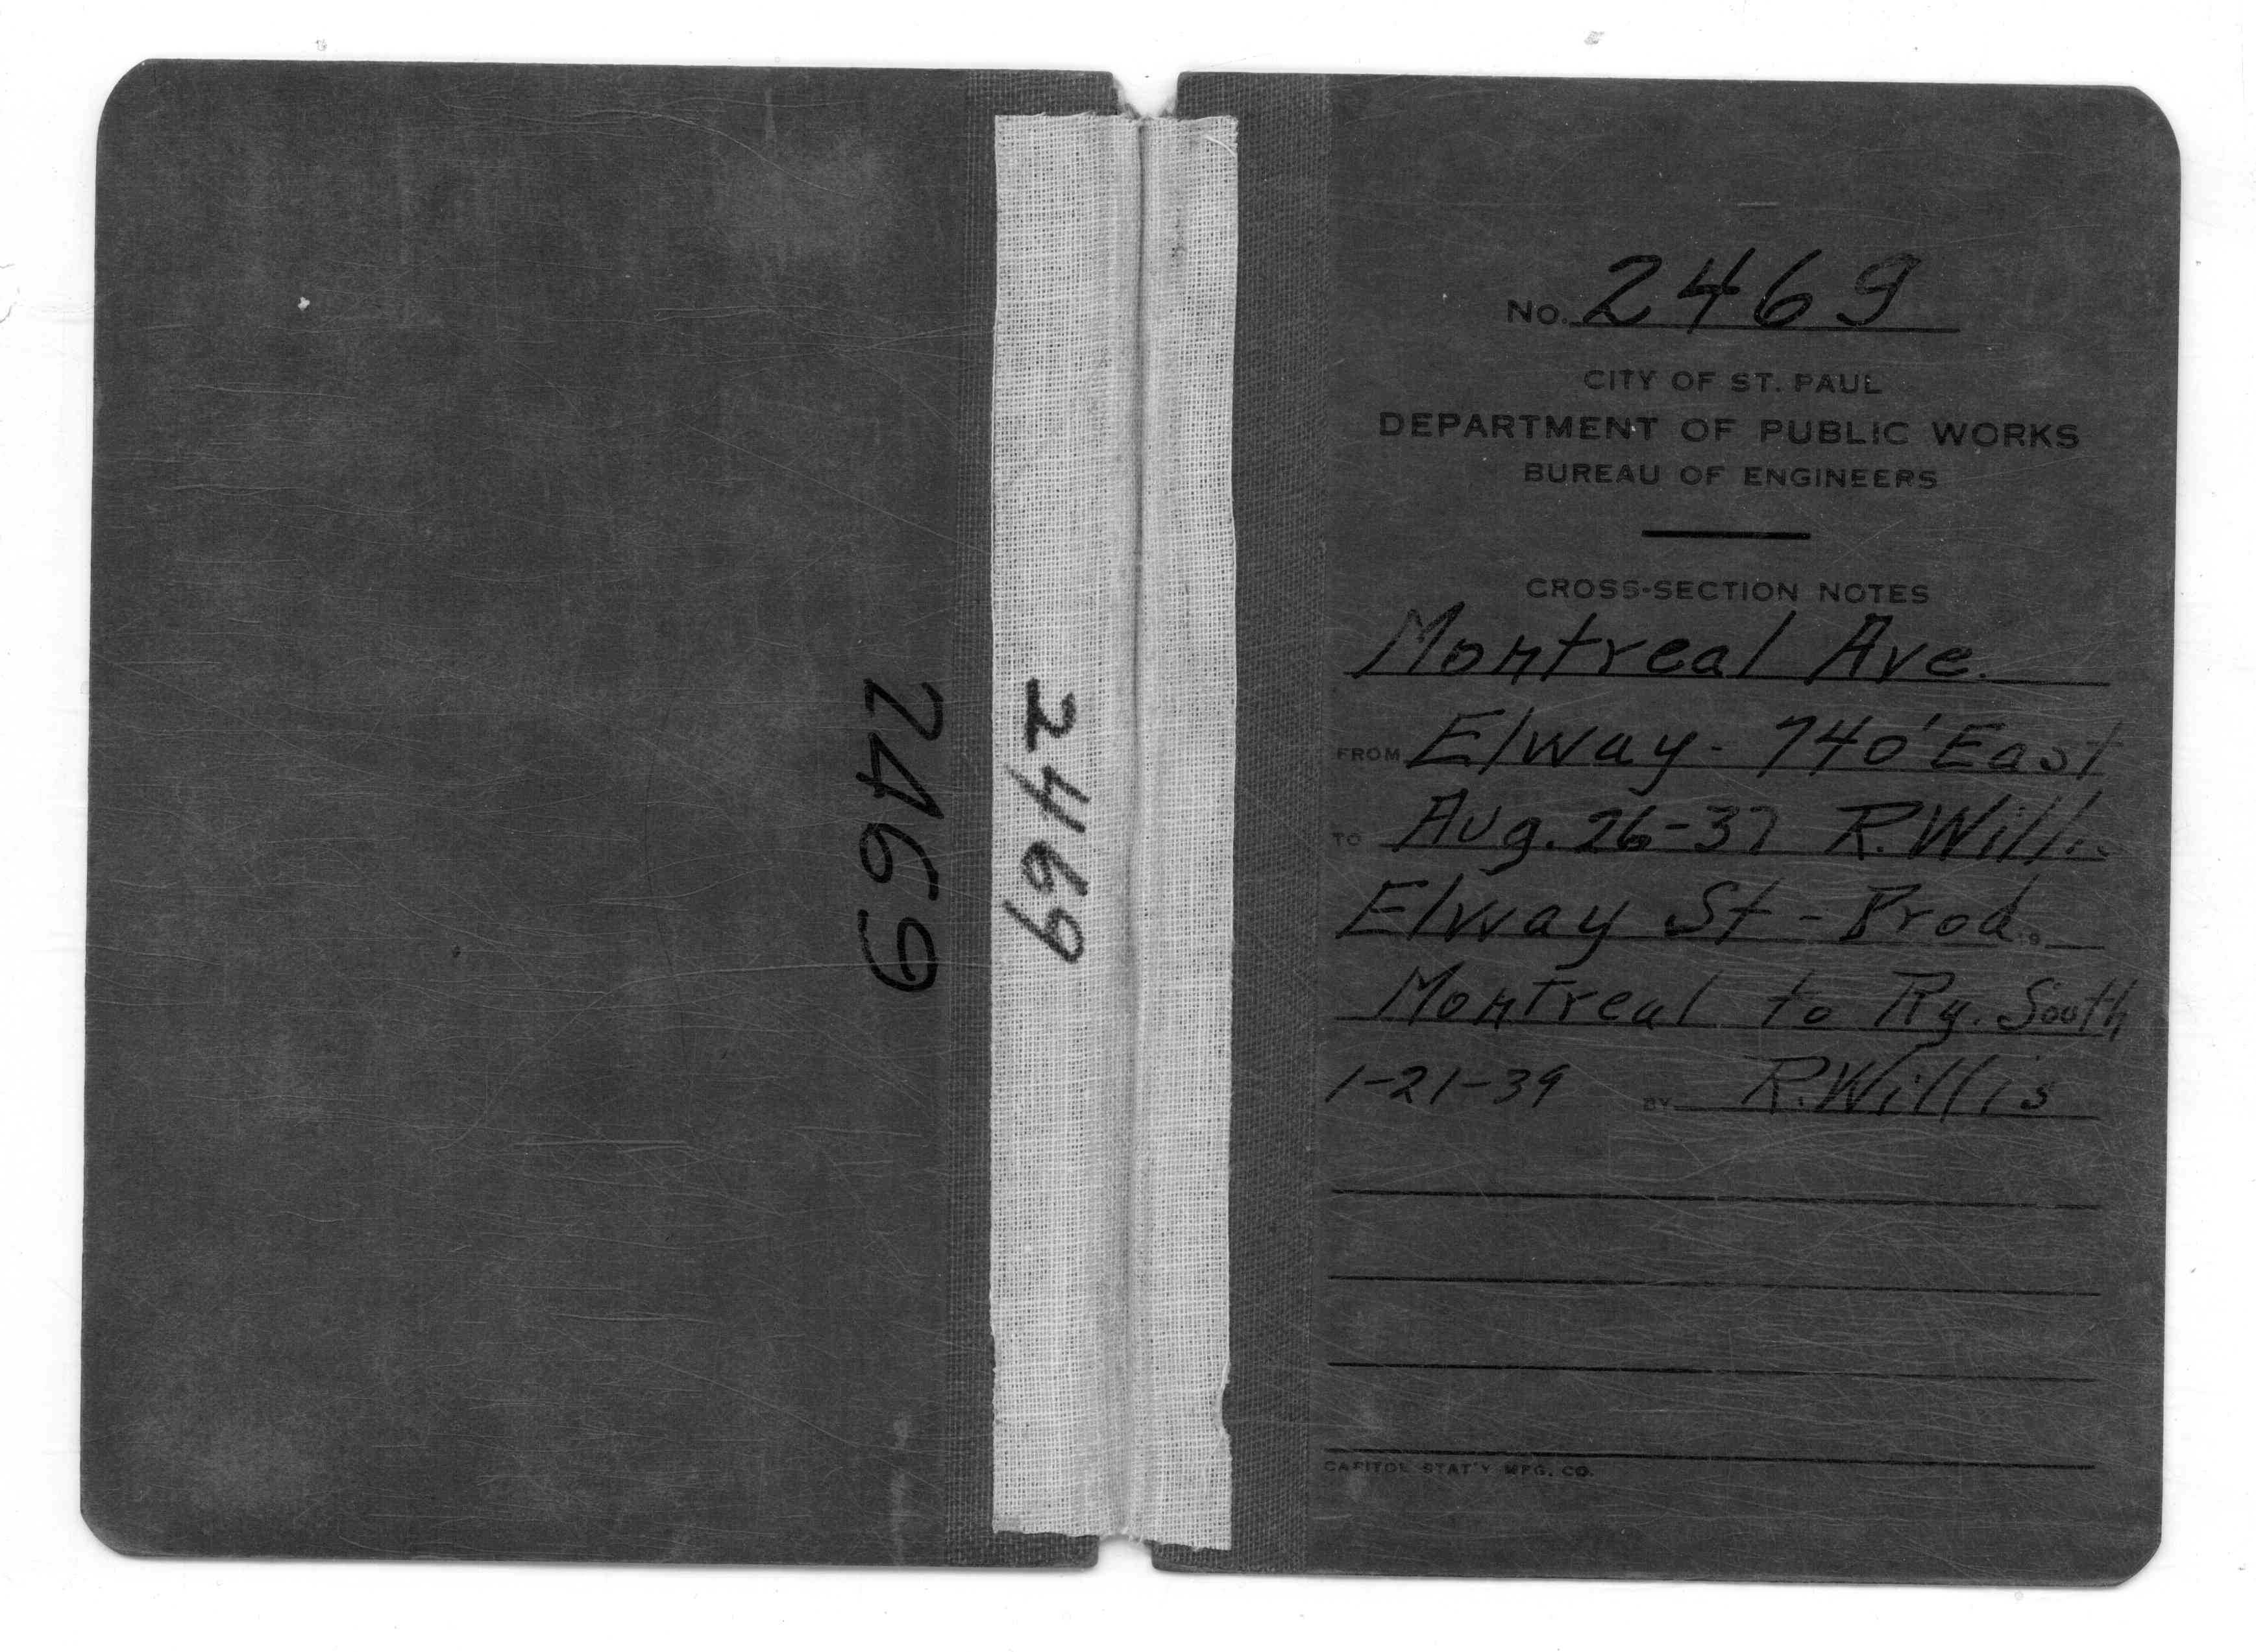 2469
2469
No. 2469
CITY OF ST. PAUL
DEPARTMENT OF PUBLIC WORKS
BUREAU OF ENGINEERS
CROSS-SECTION NOTES
Montreal Ave.
FROM Elway - 740' East
TO Aug. 26-37 R. Willis
Elway St - Prod.
Montreal to Ry. South
1-21-39 BY R. Willis
CAPITOL STAT'Y MFG. CO.